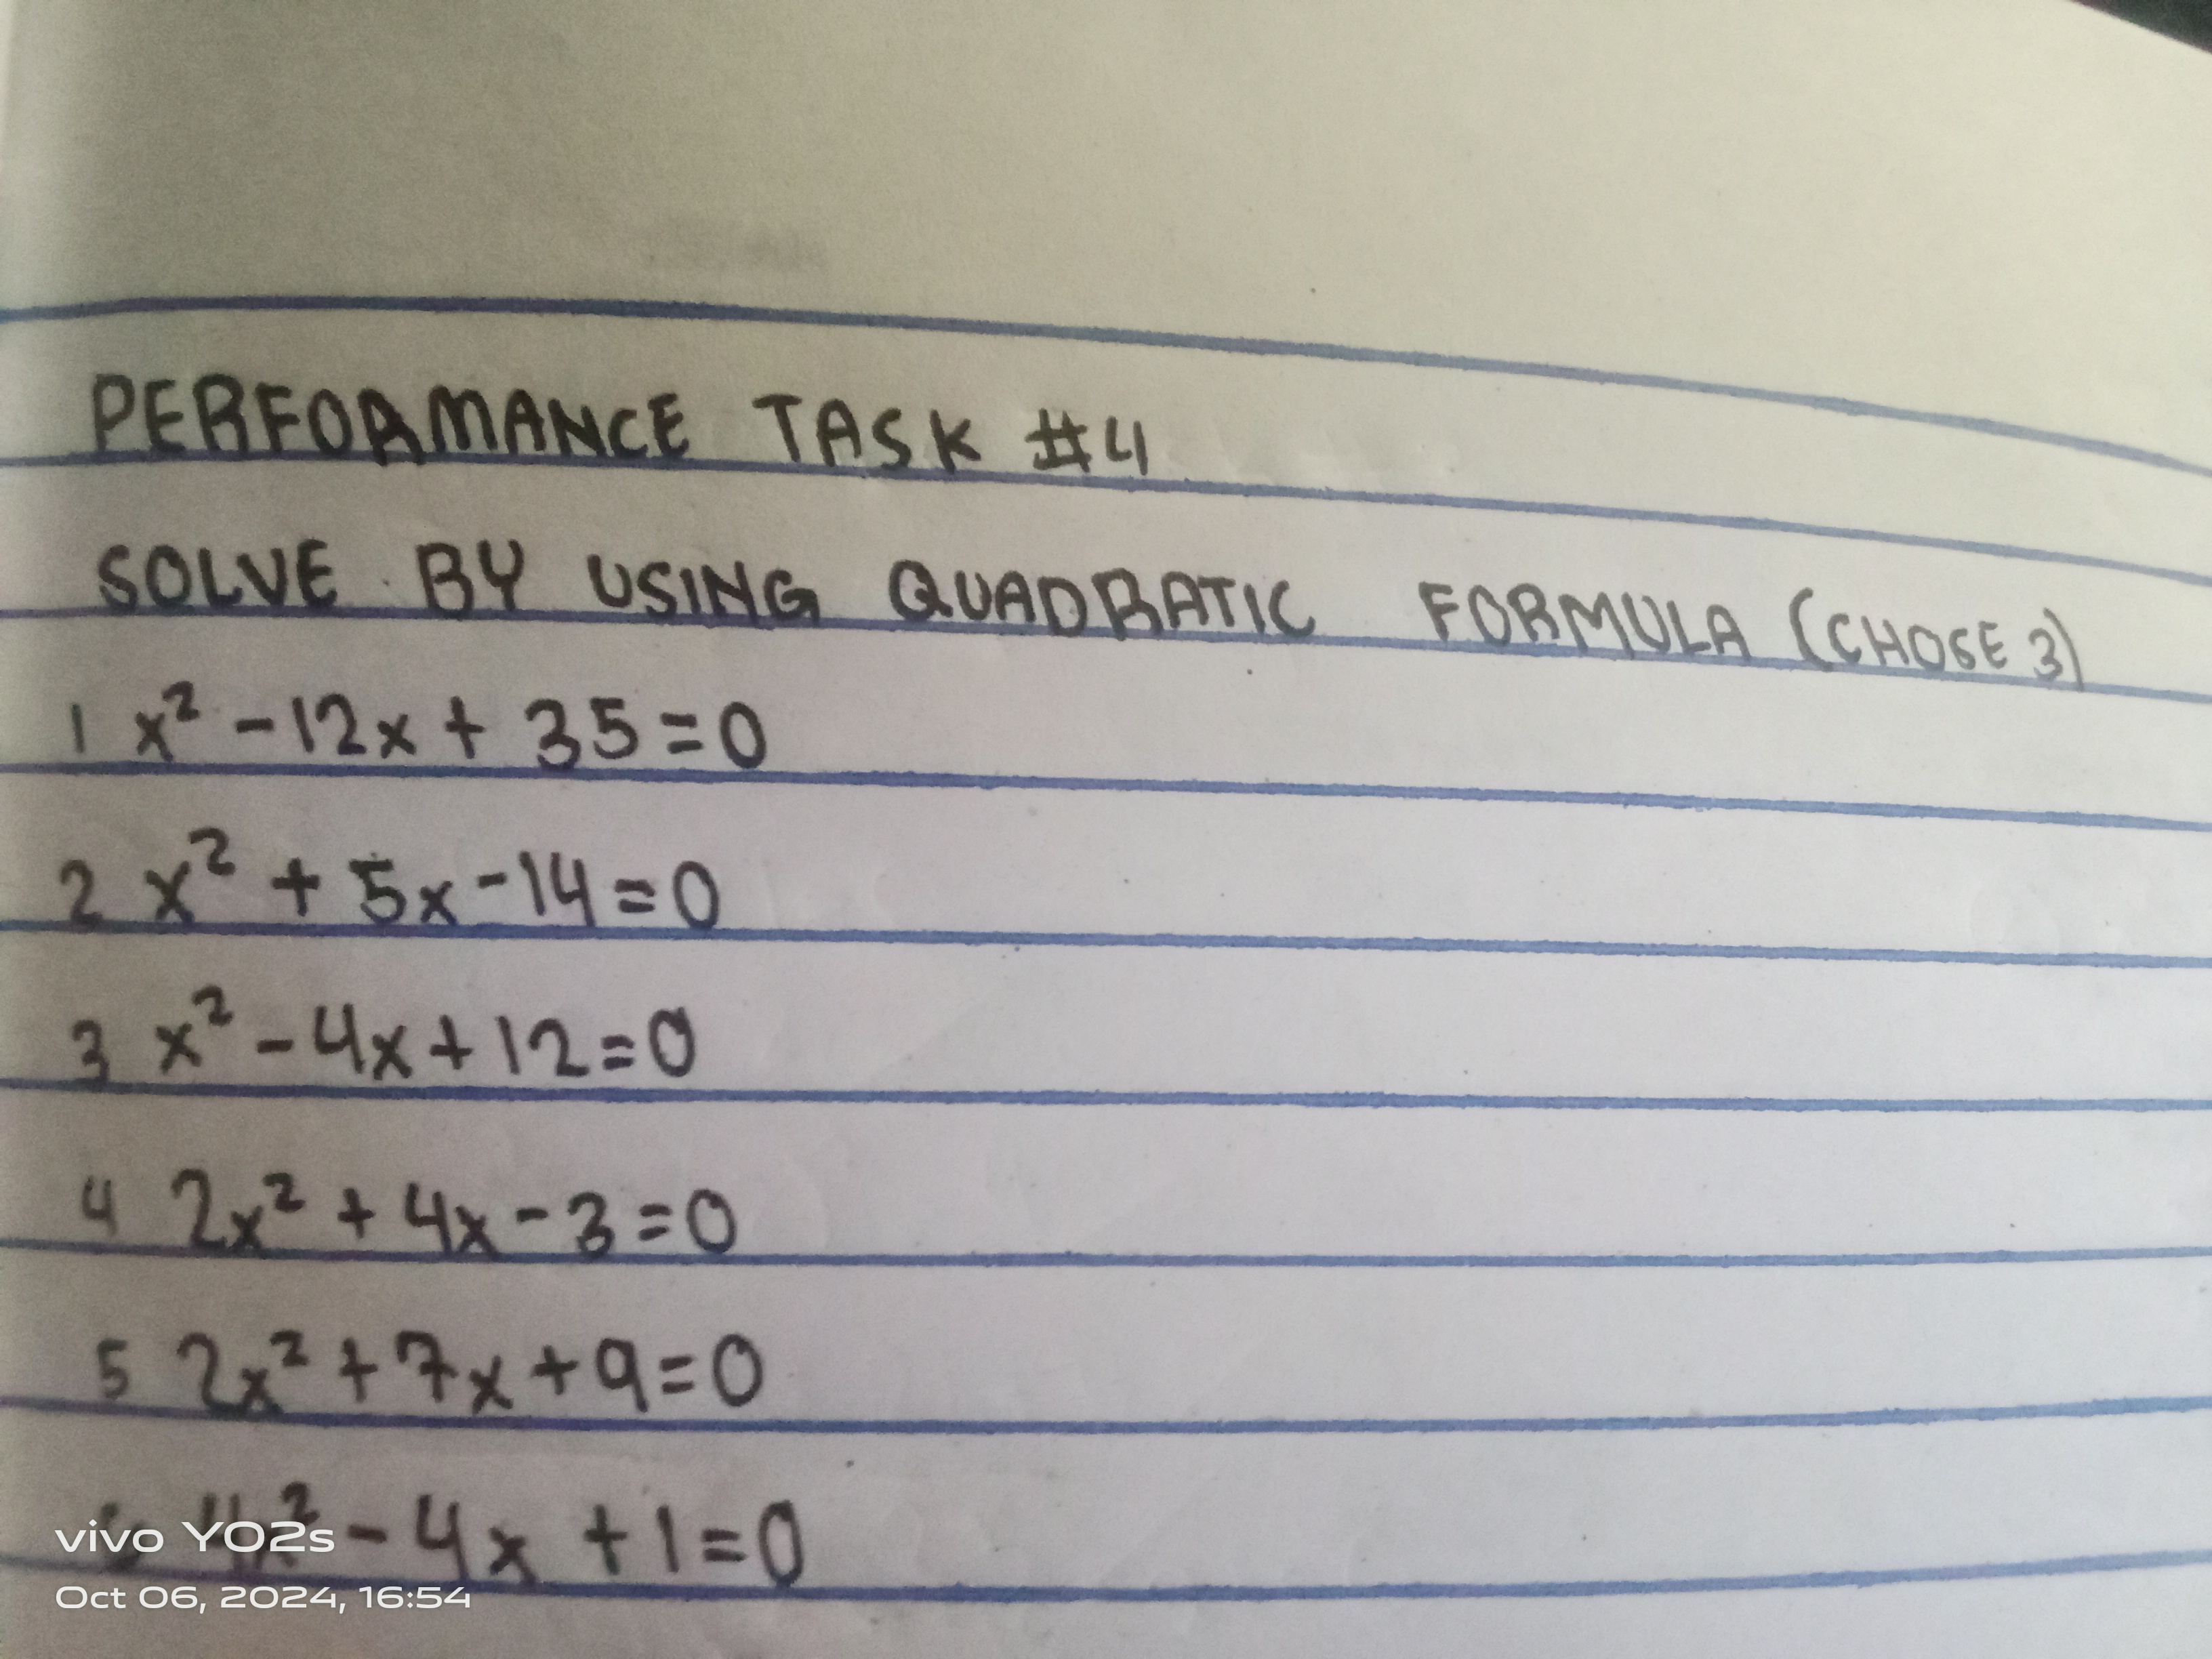 PERFORMANCE TASK #4
SOLVE BY USING QUADRATIC FORMULA (CHOSE 3)
1 x² - 12x + 35 = 0
2 x² + 5x - 14 = 0
3 x² - 4x + 12 = 0
4 2x² + 4x - 3 = 0
5 2x² + 7x + 9 = 0
4x² - 4x + 1 = 0
vivo Y02s
Oct 06, 2024, 16:54